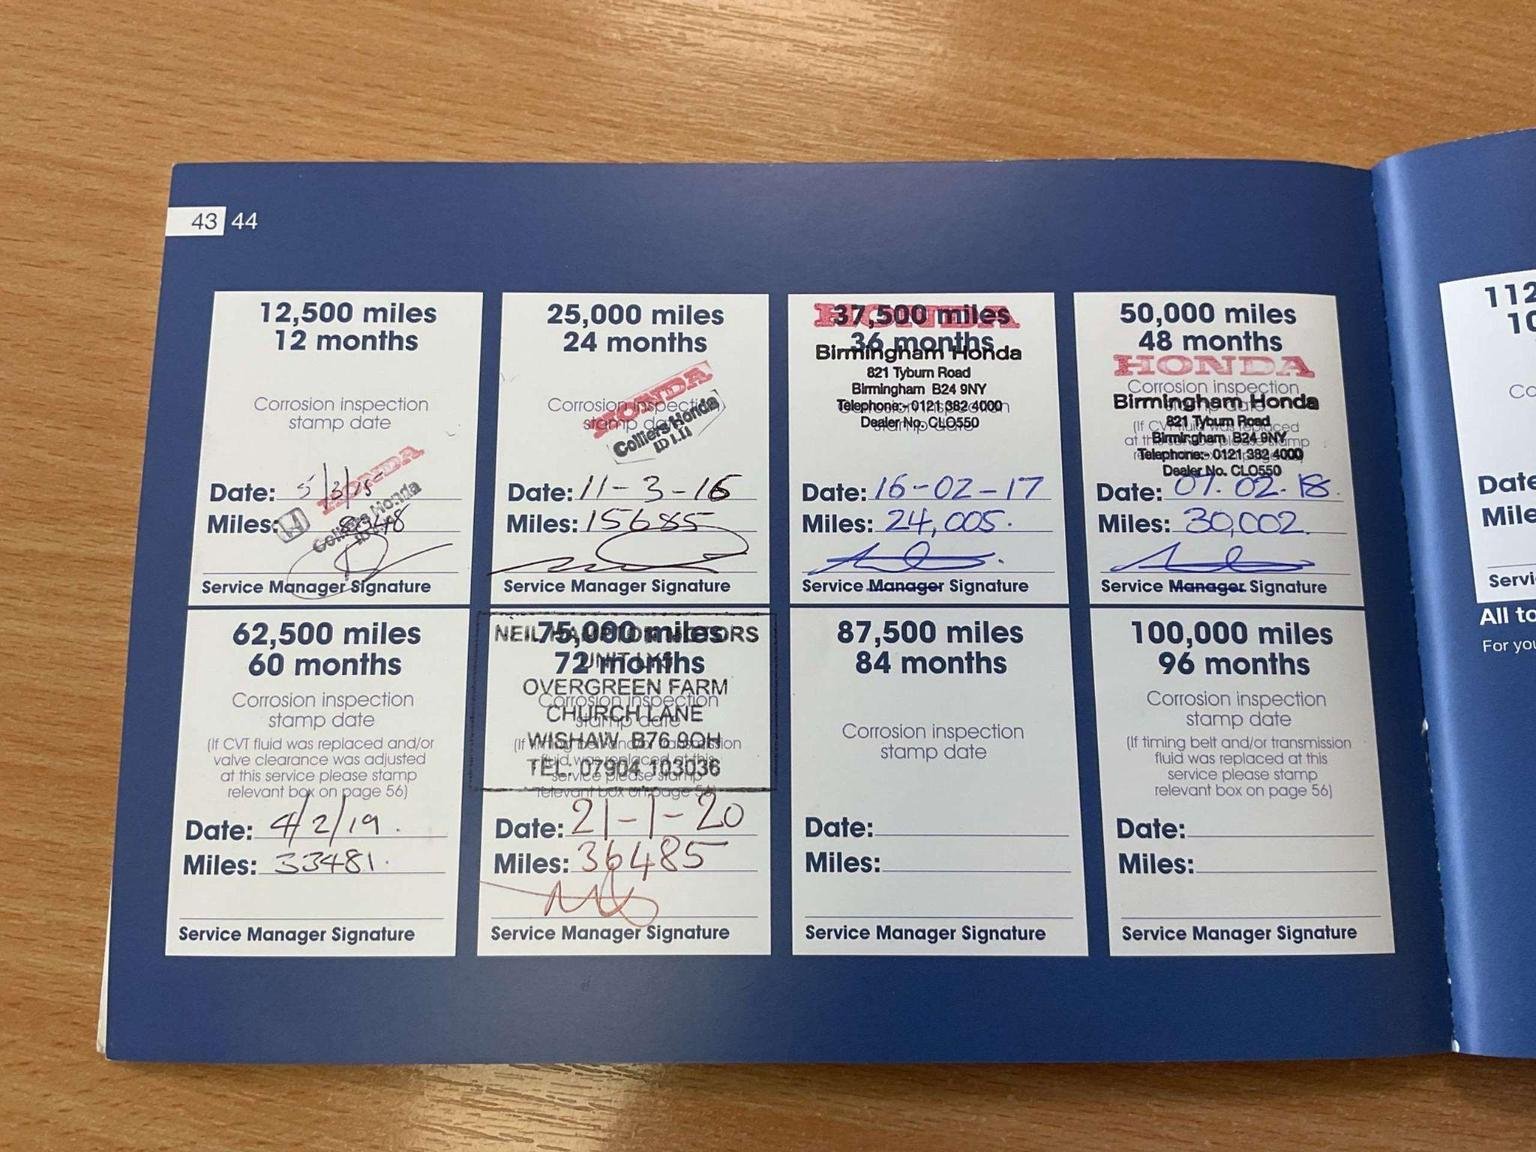 43 44
12,500 miles
12 months
Corrosion inspection
stamp date
HONDA
Colliers Honda
Date: 5/3/15
Miles:
Service Manager Signature
25,000 miles
24 months
Corrosion inspection
stamp date
HONDA
Colliers Honda
Date: 11-3-16
Miles: 15685
Service Manager Signature
HONDA
37,500 miles
36 months
Birmingham Honda
821 Tyburn Road
Birmingham B24 9NY
Telephone:- 0121 382 4000
Dealer No. CLO550
Date: 16-02-17
Miles: 24,005.
Service Manager Signature
50,000 miles
48 months
HONDA
Corrosion inspection
Birmingham Honda
821 Tyburn Road
Birmingham B24 9NY
Telephone:- 0121 382 4000
Dealer No. CLO550
Date: 07.02.18.
Miles: 30,002.
Service Manager Signature
62,500 miles
60 months
Corrosion inspection
stamp date
(If CVT fluid was replaced and/or
valve clearance was adjusted
at this service please stamp
relevant box on page 56)
Date: 4/2/19.
Miles: 33481.
Service Manager Signature
75,000 miles
NEIL HAMPTON MOTORS
72 months
UNIT
OVERGREEN FARM
Corrosion inspection
CHURCH LANE
stamp date
WISHAW B76 9QH
TEL. 07904 103036
service please stamp
relevant box on page 56)
Date: 21-1-20
Miles: 36485
Service Manager Signature
87,500 miles
84 months
Corrosion inspection
stamp date
Date:
Miles:
Service Manager Signature
100,000 miles
96 months
Corrosion inspection
stamp date
(If timing belt and/or transmission
fluid was replaced at this
service please stamp
relevant box on page 56)
Date:
Miles:
Service Manager Signature
112
10
Co
Date
Mile
Servi
All to
For you